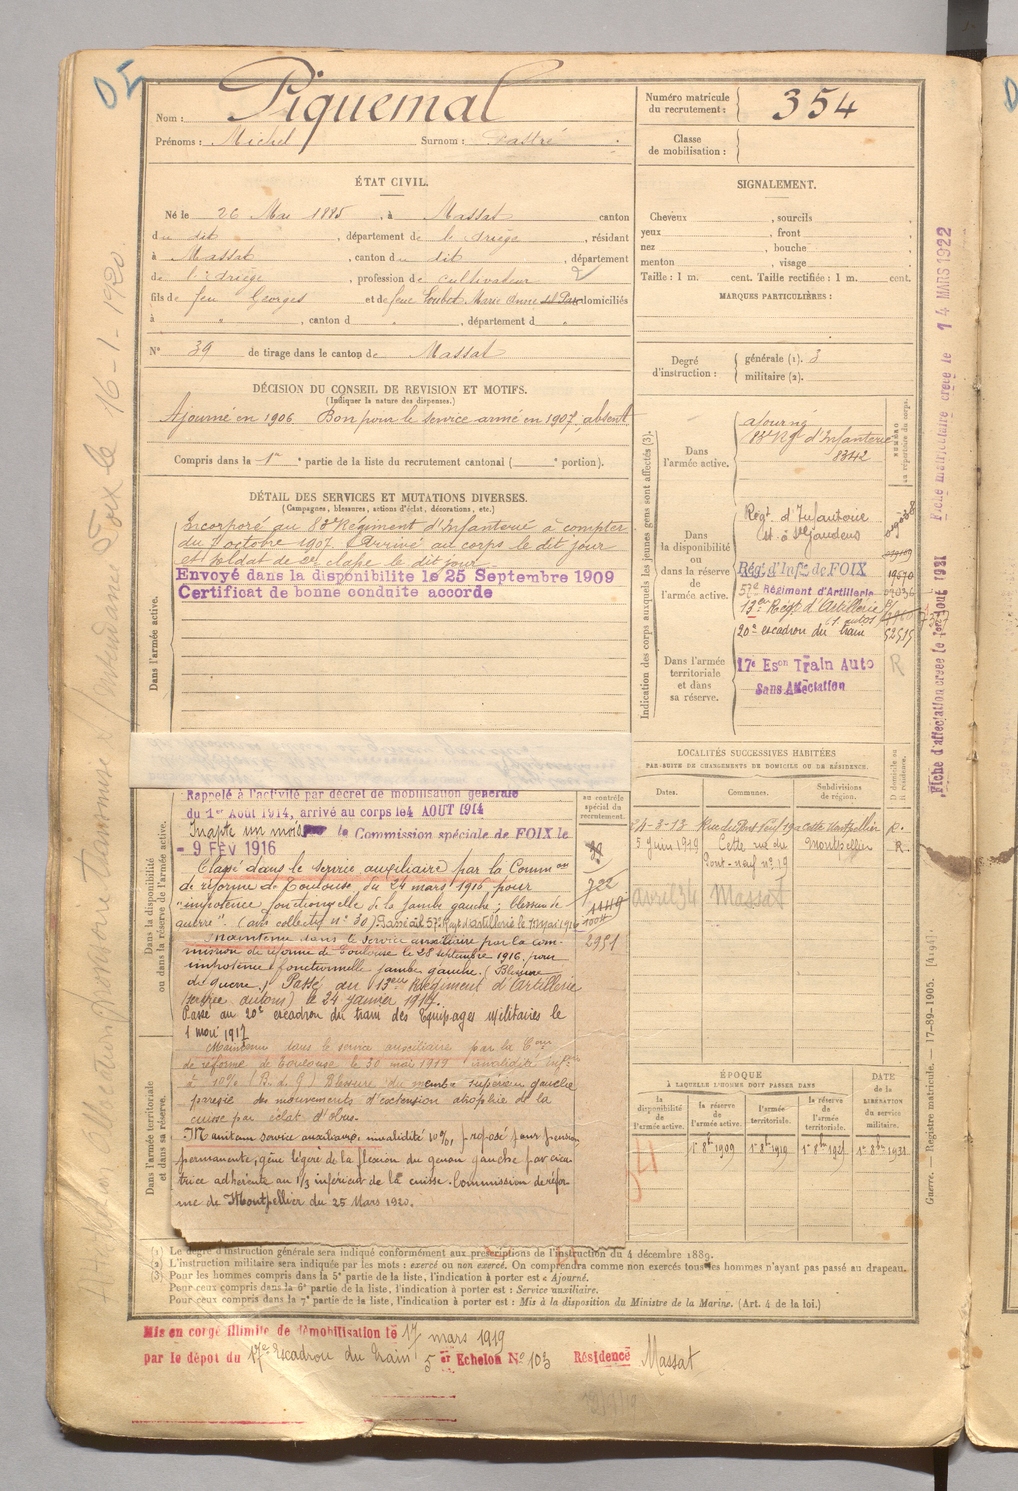 Nom : Piquemal
Prénoms : Michel Surnom : Dastré
Numéro matricule du recrutement : 354
Classe de mobilisation :
ÉTAT CIVIL.
Né le 26 Mai 1885, à Massat canton
du dit, département de l'Ariège, résidant
à Massat, canton du dit, département
de l'Ariège, profession de cultivateur
fils de feu Georges et de feue Loubet Marie Anne domiciliés
à " , canton d " , département d "
N° 39 de tirage dans le canton de Massat
SIGNALEMENT.
Cheveux , sourcils
yeux , front
nez , bouche
menton , visage
Taille : 1 m. cent. Taille rectifiée : 1 m. cent.
MARQUES PARTICULIÈRES :
Degré d'instruction : générale (1). 3
militaire (2).
DÉCISION DU CONSEIL DE REVISION ET MOTIFS.
(Indiquer la nature des dispenses.)
Ajourné en 1906 Bon pour le service armé en 1907, absent
Compris dans la 1re partie de la liste du recrutement cantonal ( e portion).
DÉTAIL DES SERVICES ET MUTATIONS DIVERSES.
(Campagnes, blessures, actions d'éclat, décorations, etc.)
Dans l'armée active.
Incorporé au 83e Régiment d'Infanterie à compter
du 7 octobre 1907. Arrivé au corps le dit jour
et soldat de 2e classe le dit jour
Envoyé dans la disponibilite le 25 Septembre 1909
Certificat de bonne conduite accorde
Dans la disponibilité ou dans la réserve de l'armée active.
Rappelé à l'activité par décret de mobilisation générale
du 1er Août 1914, arrivé au corps le 4 AOUT 1914
Inapte un mois la Commission spéciale de FOIX le
- 9 FÉV 1916
Classé dans le service auxiliaire par la Comm on
de réforme de Toulouse du 24 mars 1916 pour
"impotence fonctionnelle de la jambe gauche ; blessure de
guerre" (avis collectif n° 30) Passé au 57e Régt d'artillerie le 13 mai 1916
Maintenu dans le service auxiliaire par la com-
mission de réforme de Toulouse le 28 septembre 1916, pour
impotence fonctionnelle jambe gauche. (Blessure
de guerre.) Passé au 13ème Régiment d'Artillerie
(service autos) le 24 janvier 1917.
Passé au 20e escadron du train des Equipages Militaires le
1 mai 1917
Dans l'armée territoriale et dans sa réserve.
Maintenu dans le service auxiliaire par la Con
de réforme de Toulouse le 30 mars 1919 invalidité infre
à 10% (B. de G) Blessure du membre supérieur gauche
parésie des mouvements d'extension atrophie de la
cuisse par éclat d'obus.
Maintenu service auxiliaire invalidité 10%, proposé pour pension
permanente, gêne légère de la flexion du genou gauche par cica
trice adhérente au 1/3 inférieur de la cuisse. Commission de réfor
me de Montpellier du 25 Mars 1920.
au contrôle spécial du recrutement.
722
2981
Indication des corps auxquels les jeunes gens sont affectés (3).
Dans l'armée active.
ajourné
83e Rgt d'Infanterie
8342
Dans la disponibilité ou dans la réserve de l'armée active.
Régt d'Infanterie
et à St Gaudens
Rég. d'Infie de FOIX
57e Régiment d'Artillerie
13e Régt d'Artillerie
20e escadron du train
Dans l'armée territoriale et dans sa réserve.
17e Eson Train Auto
Sans Affectation
R
LOCALITÉS SUCCESSIVES HABITÉES
PAR SUITE DE CHANGEMENTS DE DOMICILE OU DE RÉSIDENCE.
Dates. Communes. Subdivisions de région. D domicile ou R résidence.
4-3-13 Rue du Pont Neuf 19 a Cette Montpellier R.
5 Juin 1919 Cette, rue du Pont-neuf n° 19 Montpellier R
avril 34 Massat
ÉPOQUE
À LAQUELLE L'HOMME DOIT PASSER DANS
la disponibilité de l'armée active. la réserve de l'armée active. l'armée territoriale. la réserve de l'armée territoriale.
DATE de la LIBÉRATION du service militaire.
1er 8bre 1909 1er 8bre 1919 1er 8bre 1925 1er 8bre 1931
(1) Le degré d'instruction générale sera indiqué conformément aux prescriptions de l'instruction du 4 décembre 1889.
(2) L'instruction militaire sera indiquée par les mots : exercé ou non exercé. On comprendra comme non exercés tous les hommes n'ayant pas passé au drapeau.
(3) Pour les hommes compris dans la 5e partie de la liste, l'indication à porter est « Ajourné.
Pour ceux compris dans la 6e partie de la liste, l'indication à porter est : Service auxiliaire.
Pour ceux compris dans la 7e partie de la liste, l'indication à porter est : Mis à la disposition du Ministre de la Marine. (Art. 4 de la loi.)
Mis en congé illimité de démobilisation le 17 mars 1919
par le dépot du 17e Escadron du Train 5 er Echelon N° 103 Résidence Massat
Fiche matriculaire créée le 14 MARS 1922
Fiche d'affectation créée le 1er Aout 1921
Guerre. — Registre matricule. — 17-89-1905. [4194].